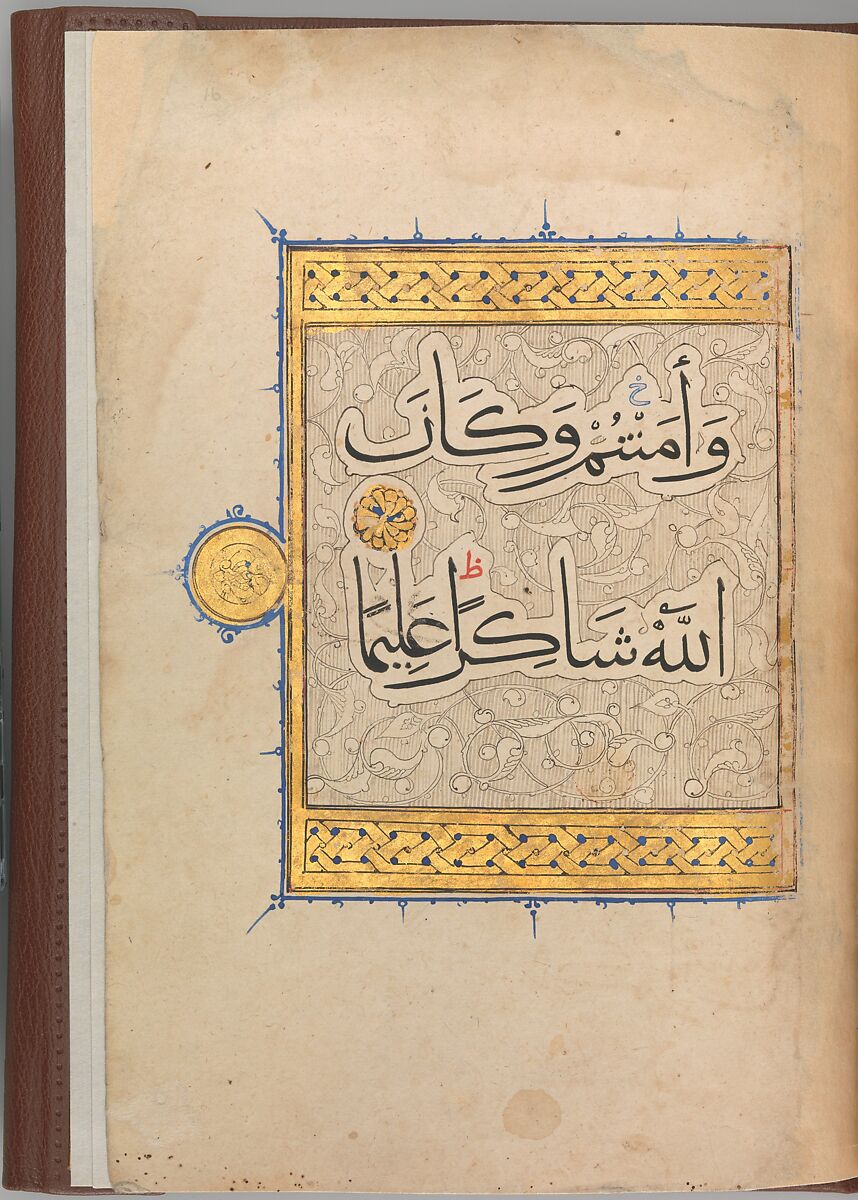 وَأَمَنتُمْ وَكَانَ
اللَّهُ شَاكِرًا عَلِيمًا